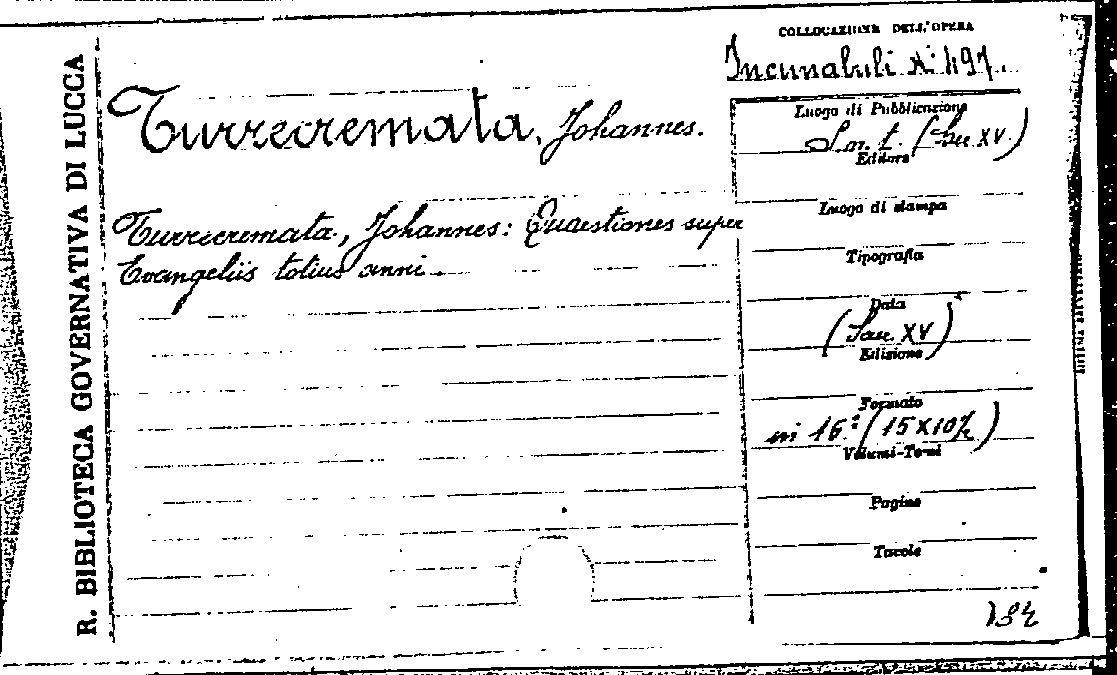 R. BIBLIOTECA GOVERNATIVA DI LUCCA
COLLOCAZIONE DELL'OPERA
Incunabuli N.° 491.
Turrecremata, Johannes.
Turrecremata, Johannes: Quaestiones super
Evangeliis totius anni
Luogo di Pubblicazione
S. n. t. (Sec. XV.)
Editore
Luogo di stampa
Tipografia
Data
(Saec. XV)
Edizione
Formato
in 16.° (15 X 10½)
Volumi-Tomi
Pagine
Tavole